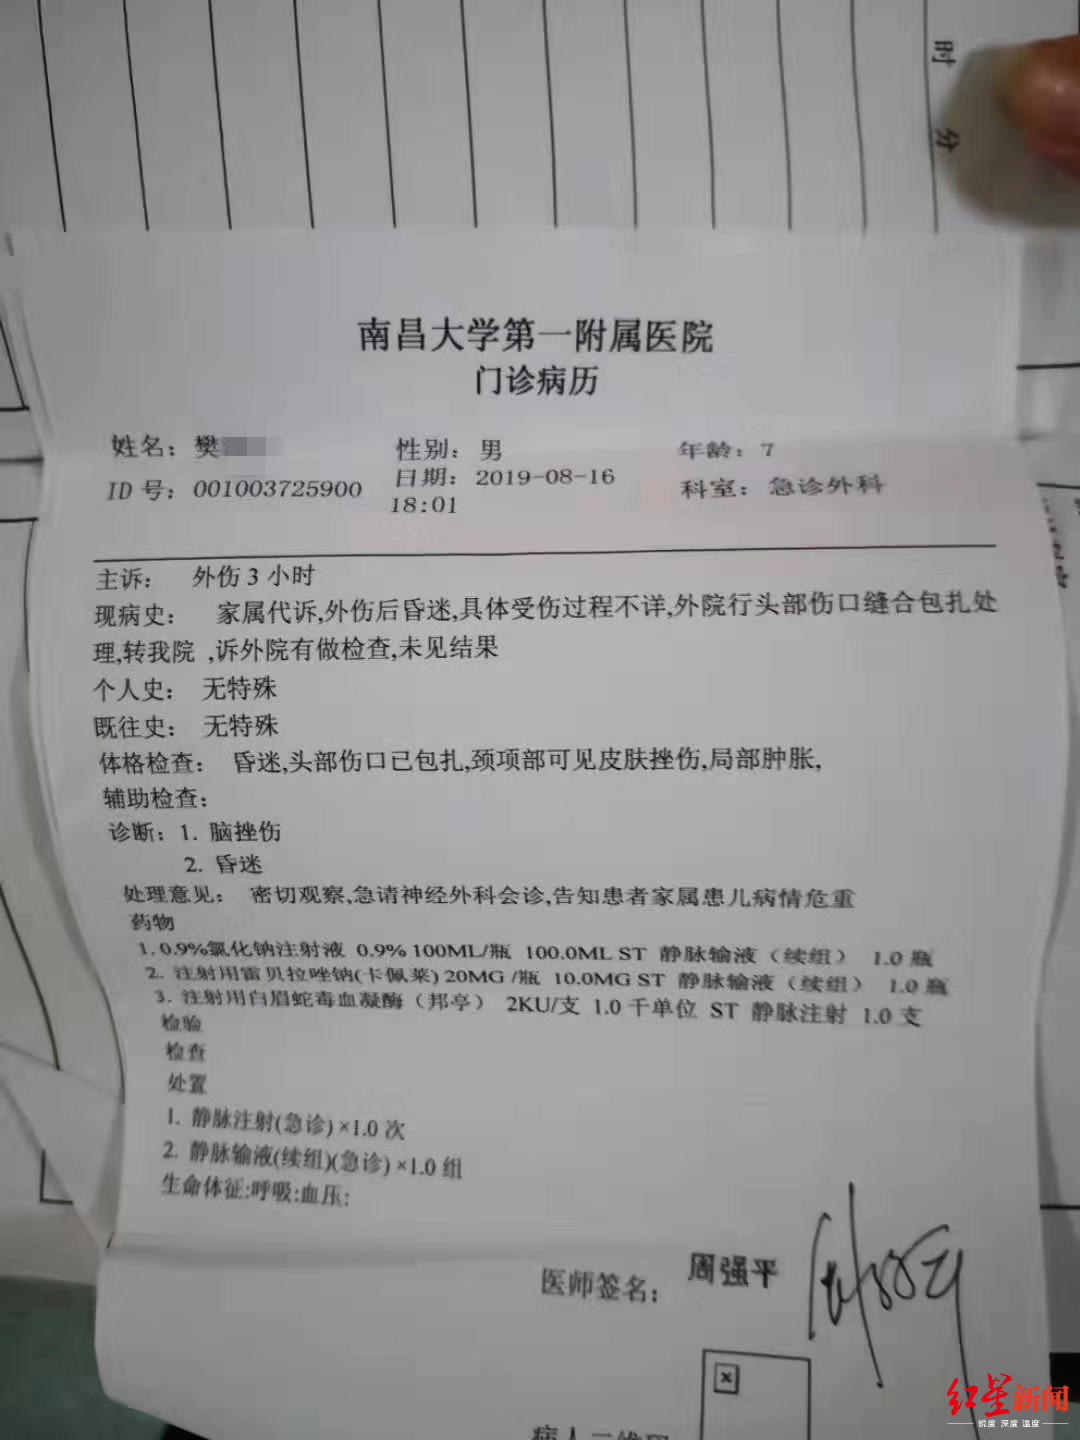 时 分
南昌大学第一附属医院
门诊病历
姓名: 樊 性别: 男 年龄: 7
ID 号: 001003725900 日期: 2019-08-16 科室: 急诊外科
18:01
主诉: 外伤 3 小时
现病史: 家属代诉,外伤后昏迷,具体受伤过程不详,外院行头部伤口缝合包扎处
理,转我院 ,诉外院有做检查,未见结果
个人史: 无特殊
既往史: 无特殊
体格检查: 昏迷,头部伤口已包扎,颈项部可见皮肤挫伤,局部肿胀,
辅助检查:
诊断: 1. 脑挫伤
2. 昏迷
处理意见: 密切观察,急请神经外科会诊,告知患者家属患儿病情危重
药物
1. 0.9%氯化钠注射液 0.9% 100ML/瓶 100.0ML ST 静脉输液（续组） 1.0 瓶
2. 注射用雷贝拉唑钠(卡佩莱) 20MG /瓶 10.0MG ST 静脉输液（续组） 1.0 瓶
3. 注射用白眉蛇毒血凝酶（邦亭） 2KU/支 1.0 千单位 ST 静脉注射 1.0 支
检验
检查
处置
1. 静脉注射(急诊) ×1.0 次
2. 静脉输液(续组)(急诊) ×1.0 组
生命体征:呼吸:血压:
医师签名: 周强平
红星新闻
锐度 深度 温度